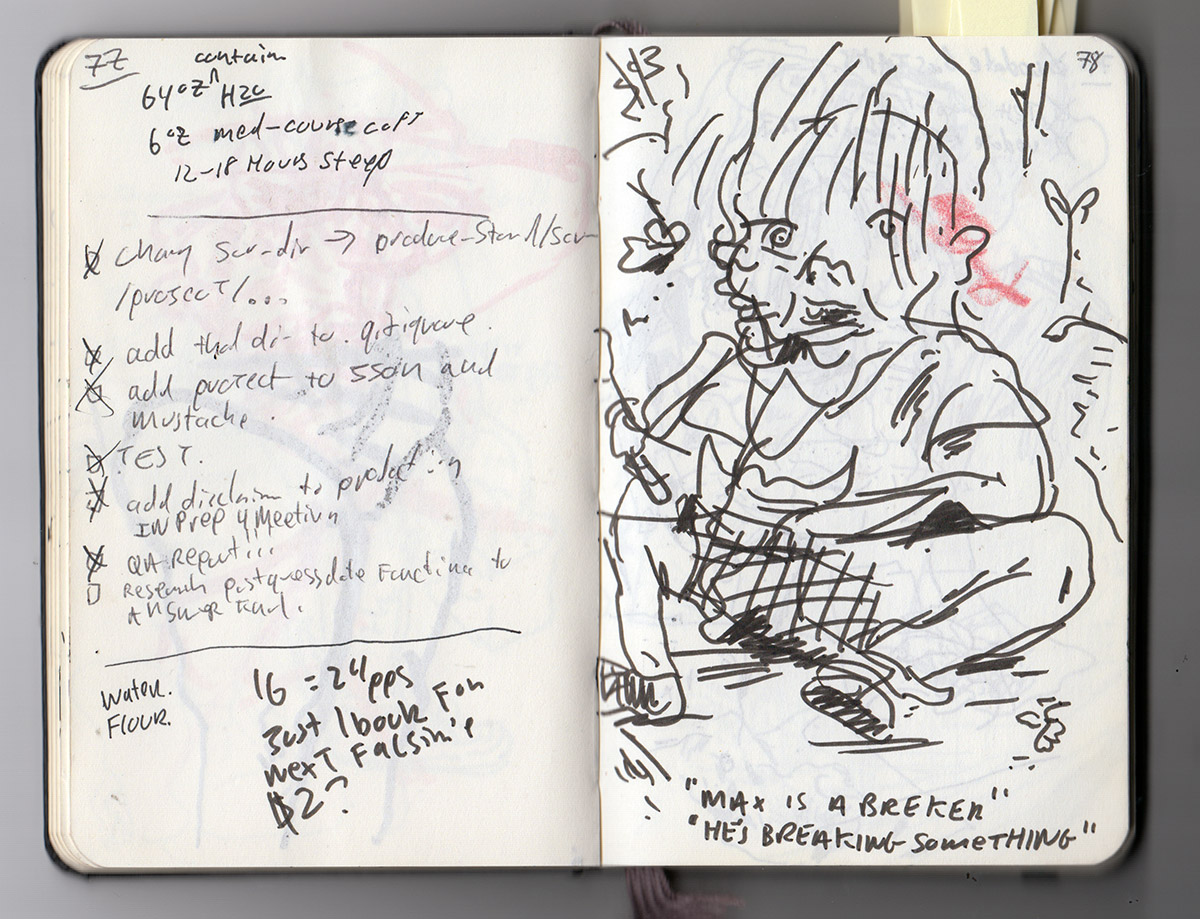 77
contain
64oz ^ H2O
6oz med-course coff
12-18 Hours steep
chang scr-dir → produce-
/project/...
add that dir to .gitignore.
add project to JSON and
mustache.
TEST.
add disclaim to production
IN Prep 4 Meeting
QA Report!!!
Research postgress date Function to
Answer
water.
Flour.
16 = 24pps
Just 1 book For
next
$2?
78
"MAX IS A BREKER"
"HE'S BREAKING SOMETHING"